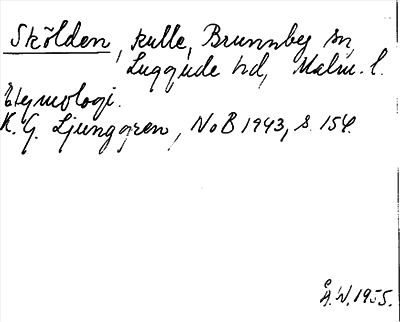 Skölden, kulle, Brunnby sn,
Luggude hd, Malm. l.
Etymologi.
K. G. Ljunggren, NoB 1943, s. 154.
Å. W. 1955.